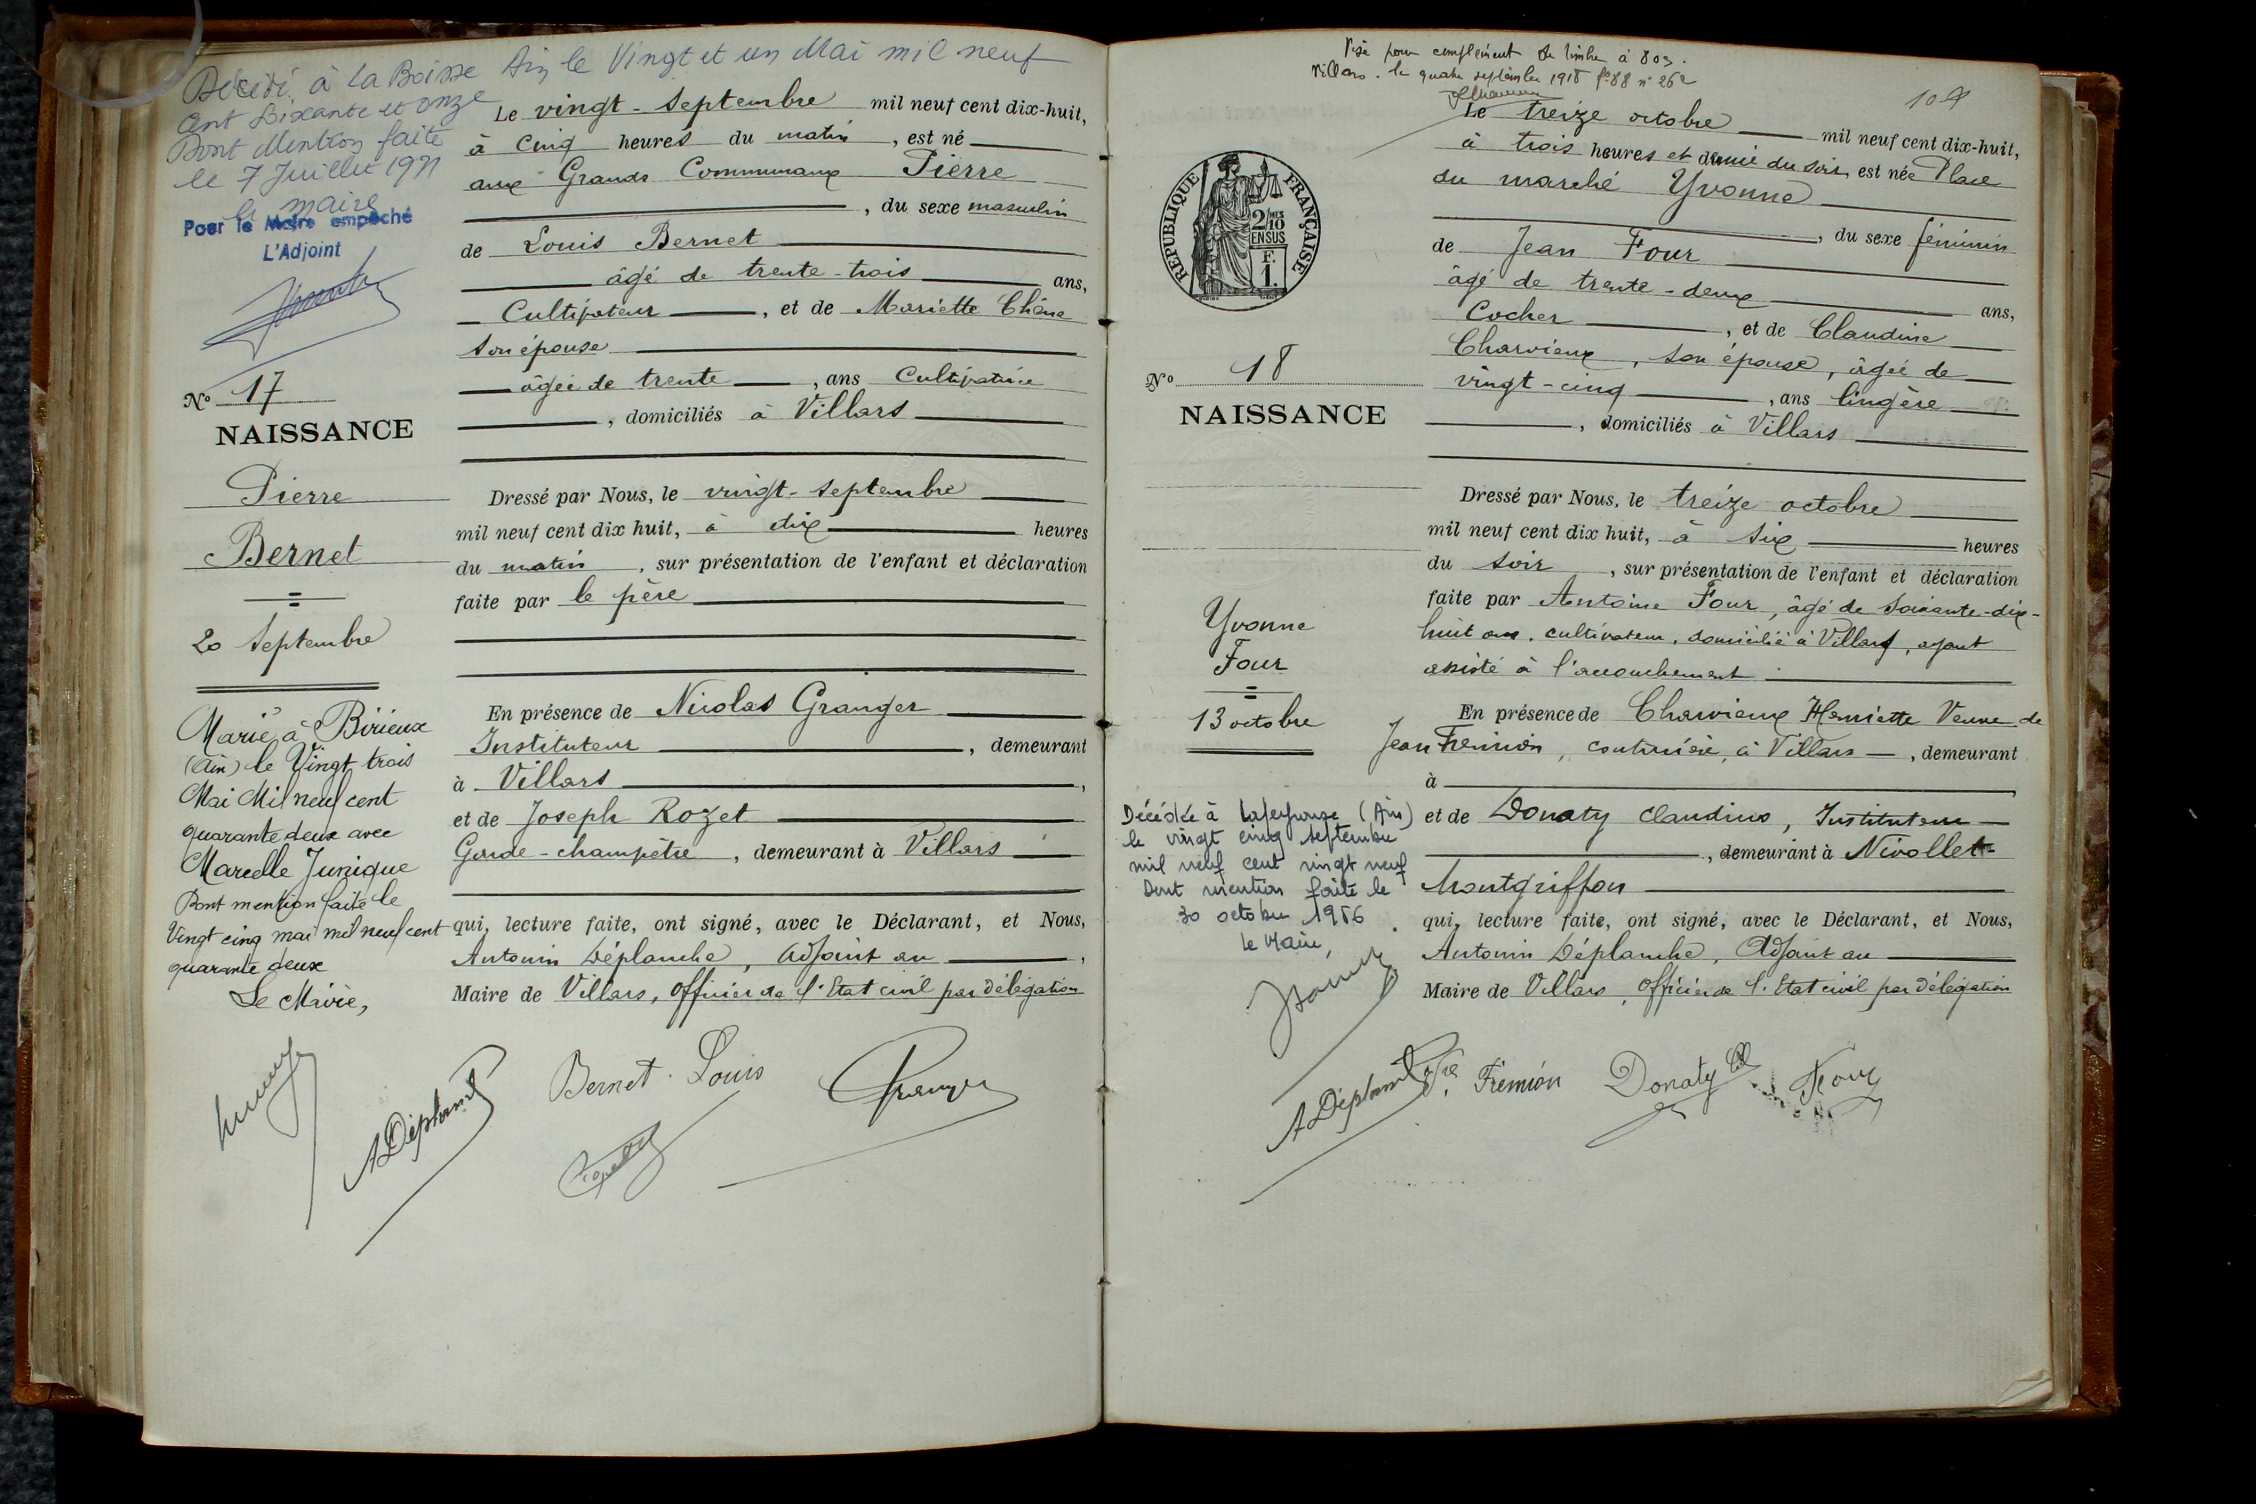 Décédé à La Boisse Ain le Vingt et un Mai mil neuf
cent Soixante et onze
Dont Mention faite
le 7 Juillet 1971
le maire
Pour le Maire empêché
L'Adjoint
N° 17
NAISSANCE
Pierre
Bernet
20 Septembre
Marié à Birieux
(Ain) le Vingt trois
Mai Mil neuf cent
quarante deux avec
Marcelle Junique
Dont mention faite le
Vingt cinq mai mil neuf cent
quarante deux
Le Maire,
Le vingt-Septembre mil neuf cent dix-huit,
à Cinq heures du matin, est né
aux Grands Communaux Pierre
, du sexe masculin
de Louis Bernet
âgé de trente-trois ans,
Cultivateur, et de Mariette Chêne
son épouse
âgée de trente, ans Cultivatrice
, domiciliés à Villars
Dressé par Nous, le vingt-septembre
mil neuf cent dix huit, à dix heures
du matin, sur présentation de l'enfant et déclaration
faite par le père
En présence de Nicolas Granger
Instituteur, demeurant
à Villars,
et de Joseph Rozet
Garde-champêtre, demeurant à Villars
qui, lecture faite, ont signé, avec le Déclarant, et Nous,
Antonin Déplanche, Adjoint au,
Maire de Villars, officier de l'Etat civil par délégation
ADéplanche
Bernet Louis
Granger
Visé pour complément de timbre à 803.
Villars. le quatre septembre 1918 f° 88 n° 262
104
RÉPUBLIQUE FRANÇAISE
2/10 EN SUS
F. 1.
N° 18
NAISSANCE
Yvonne
Four
13 octobre
Décédée à Lapeyrouse (Ain)
le vingt cinq septembre
mil neuf cent vingt neuf
Dont mention faite le
30 octobre 1986
Le Maire,
Le treize octobre mil neuf cent dix-huit,
à trois heures et demie du soir, est née Place
du marché Yvonne
, du sexe féminin
de Jean Four
âgé de trente-deux ans,
Cocher, et de Claudine
Charvieux, son épouse, âgée de
vingt-cinq, ans lingère
, domiciliés à Villars
Dressé par Nous, le treize octobre
mil neuf cent dix huit, à six heures
du soir, sur présentation de l'enfant et déclaration
faite par Antoine Four, âgé de soixante-dix-
huit ans, cultivateur, domicilié à Villars, ayant
assisté à l'accouchement
En présence de Charvieux Henriette Veuve de
Jean Frémion, couturière, à Villars, demeurant
à
et de Donaty Claudius, Instituteur
, demeurant à Nivollet-
Montgriffon
qui, lecture faite, ont signé, avec le Déclarant, et Nous,
Antonin Déplanche, Adjoint au
Maire de Villars, officier de l'Etat civil par délégation
ADéplanche
Frémion
Donaty Cl
Four